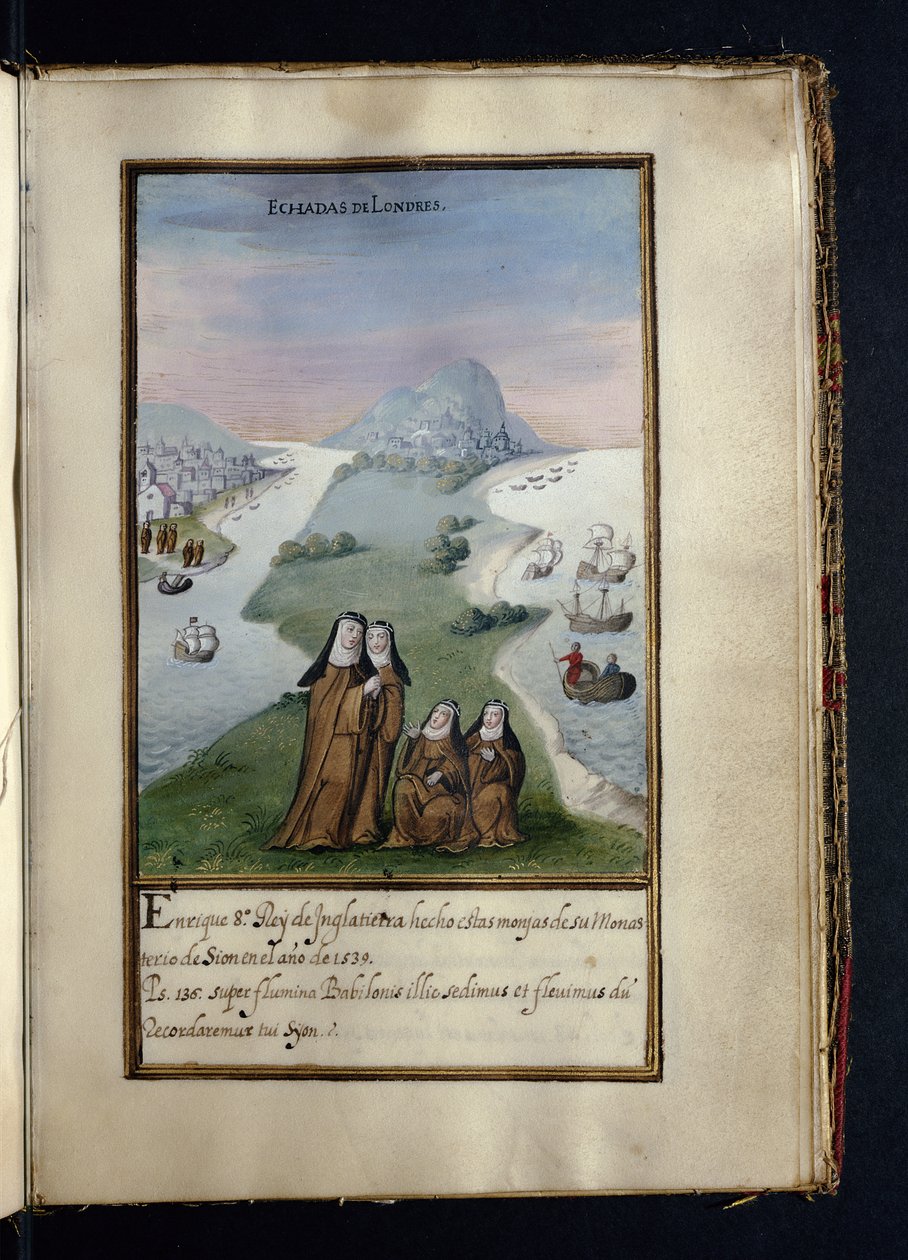 ECHADAS DE LONDRES,
Enrique 8.º Rey de Inglatierra hecho estas monjas de su Monas-
terio de Sion en el año de 1539.
Ps. 136. super flumina Babilonis illic sedimus et flevimus dū
Recordaremur tui Syon.